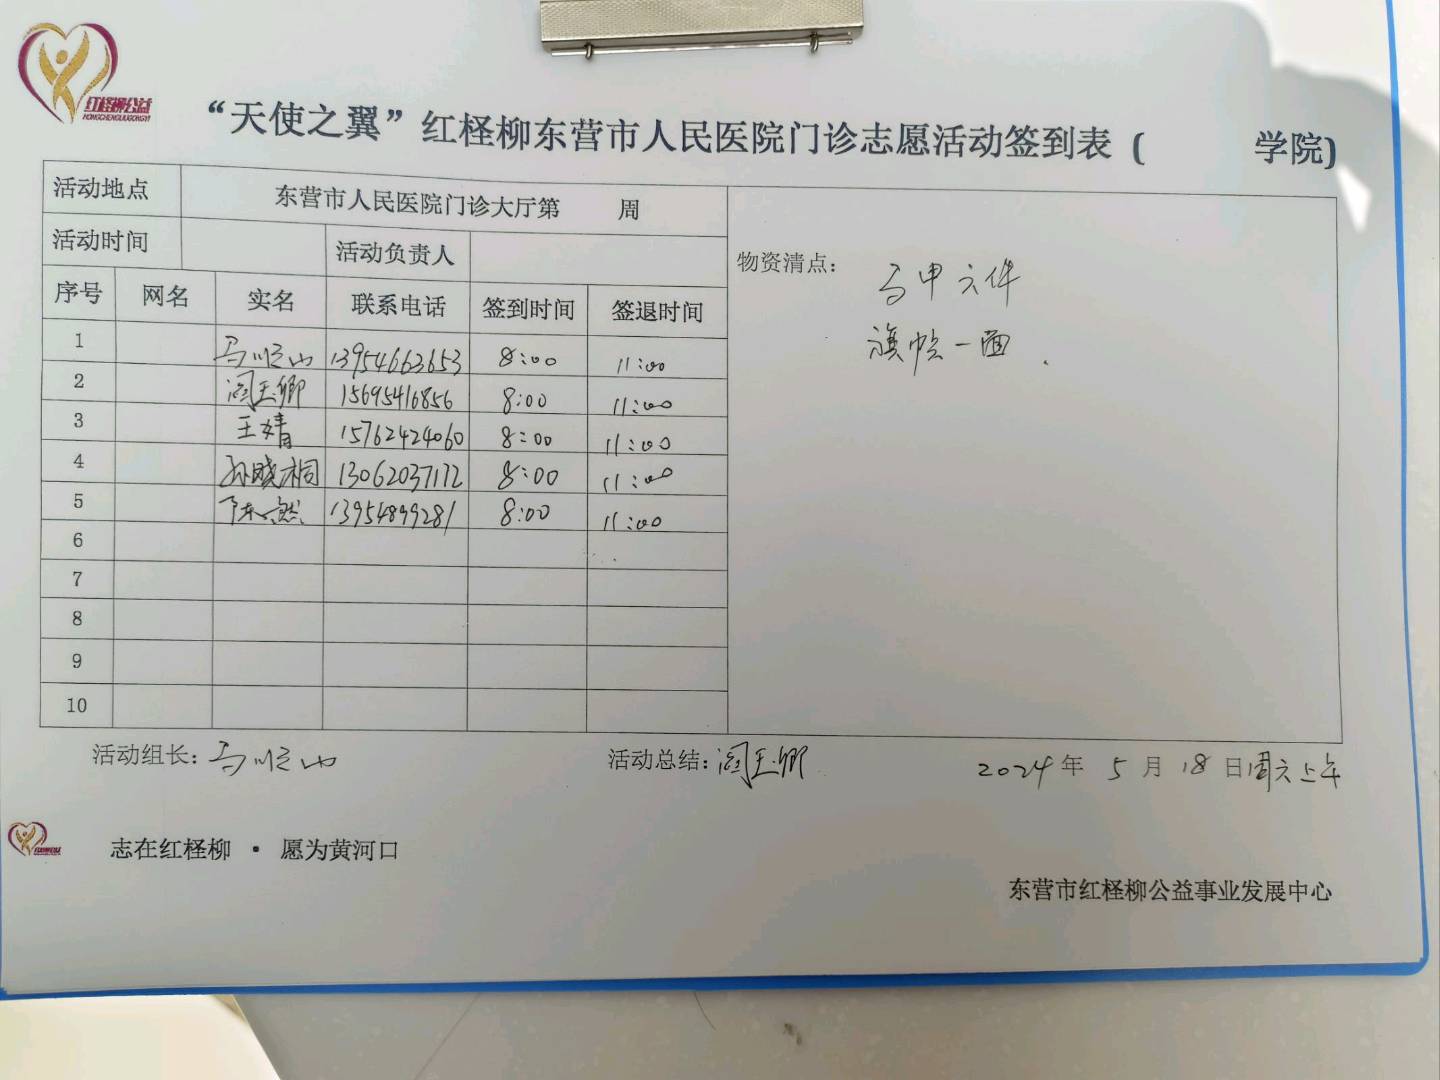 红柽柳公益
HONGCHENGLIUGONGYI
“天使之翼”红柽柳东营市人民医院门诊志愿活动签到表 ( 学院)
活动地点 东营市人民医院门诊大厅第 周
活动时间 活动负责人
物资清点: 马甲六件
旗帜一面.
序号 网名 实名 联系电话 签到时间 签退时间
1 马顺山 13954663653 8:00 11:00
2 阎玉卿 15695416856 8:00 11:00
3 王婧 15762424060 8:00 11:00
4 孙晓桐 13062037172 8:00 11:00
5 陈燃 13954899281 8:00 11:00
6
7
8
9
10
活动组长: 马顺山 活动总结: 阎玉卿 2024年 5月 18日周六上午
志在红柽柳 • 愿为黄河口
东营市红柽柳公益事业发展中心